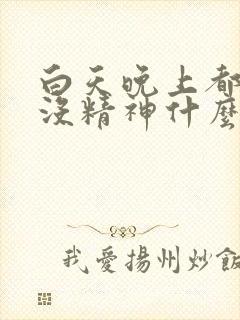 白天晚上都
沒精神什麼
我愛揚州炒飯